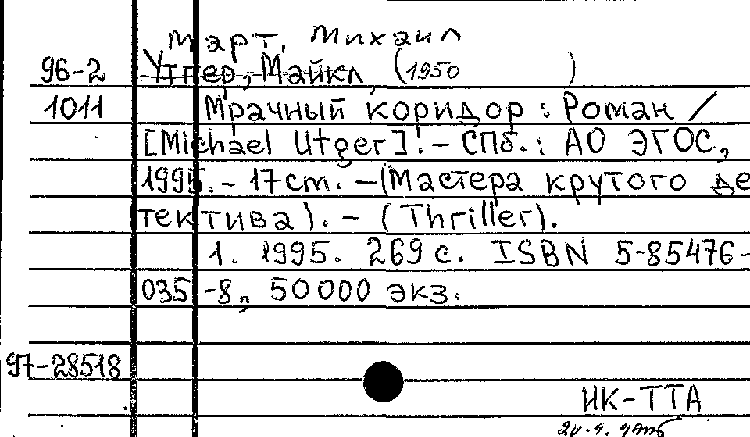 Март, Михаил
96-2 Утгер, Майкл, (1950 )
1011 Мрачный коридор : Роман /
[Michael Utger]. - СПб. : АО ЭГОС,
1995. - 17 cm. - (Мастера крутого де-
тектива). - (Thriller).
1. 1995. 269 с. ISBN 5-85476-
035-8, 50000 экз.
97-28518
НК-ТТА